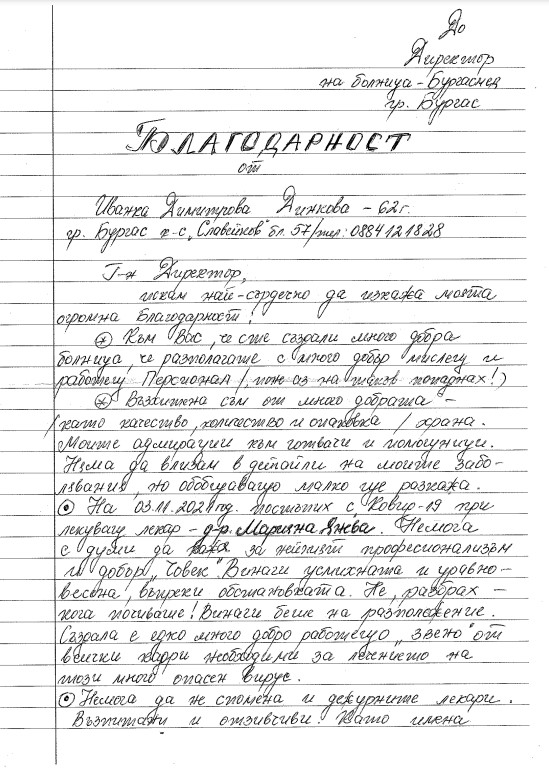 До
Директор
на болница - Бургасмед
гр. Бургас
БЛАГОДАРНОСТ
от
Иванка Димитрова Динкова - 62 г.
гр. Бургас ж-с „Славейков" бл. 57/тел: 0884121828
Г-н Директор,
искам най-сърдечно да изкажа моята
огромна Благодарност!
* Към Вас, че сте създали много добра
болница, че разполагате с много добър мислещ и
работещ Персионал /, пож аз на такъв попаднах!)
* Възхитена съм от много добрата -
/като качество, количество и опаковка / храна.
Моите адмирации към готвачи и помощници.
Нема да влизам в детайли на моите забо-
лявания, но обобщаващо малко ще разкажа.
На 03.11.2021 год. постъпих с Ковид-19 при
лекуващ лекар - д-р. Мариана Янева. Немога
с думи да кажа за нейният професионализъм
и добър „Човек". Винаги усмихната и уравно-
весена, въпреки обстановката. Не, разбрах -
кога почиваше! Винаги беше на разположение.
Създала е едно много добро работещо „звено" от
всички кадри необходими за лечението на
този много опасен вирус.
Немога да не спомена и дежурните лекари.
Възпитани и отзивчиви. Като имена